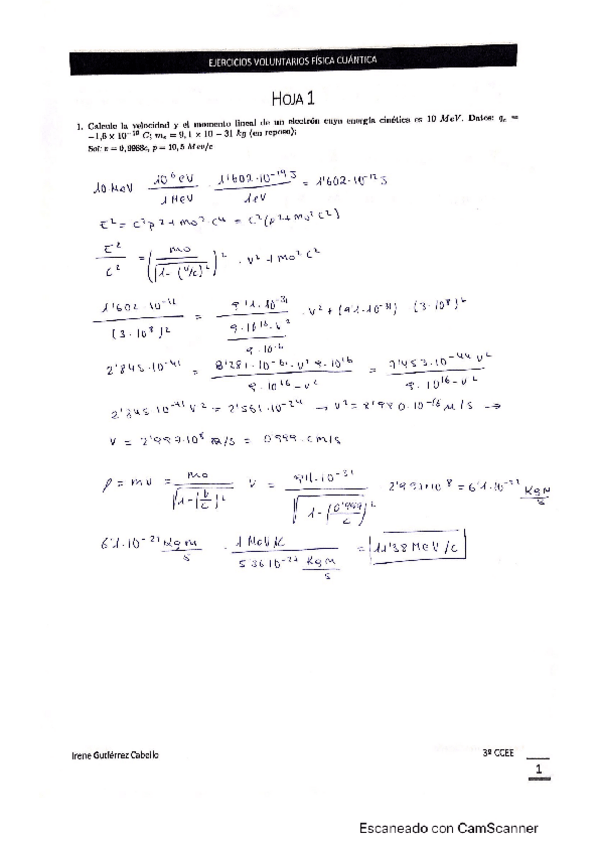 EJERCICIOS VOLUNTARIOS FÍSICA CUÁNTICA
HOJA 1
1. Calcule la velocidad y el momento lineal de un electrón cuya energía cinética es 10 MeV. Datos: qₑ =
−1,6 × 10⁻¹⁹ C; mₑ = 9,1 × 10 − 31 kg (en reposo);
Sol: v = 0,9988c, p = 10,5 Mev/c
10 MeV · 10⁶ eV / 1 MeV · 1'602·10⁻¹⁹ J / 1 eV = 1'602·10⁻¹² J
E² = c²p² + mo²·c⁴ = c²(p² + mo²c²)
E²/c² = (mo / √(1-(v/c)²))² · v² + mo²c²
1'602·10⁻¹² / (3·10⁸)² = 9'11·10⁻³¹ / · v² + (9'1·10⁻³¹) (3·10⁸)²
= 8'281·10⁻⁶¹·v² 9·10¹⁶ / 9·10¹⁶-v² = 7'453·10⁻⁴⁴ v² / 9·10¹⁶-v²
2'845·10⁻⁴¹ v² = 2'561·10⁻²⁴ → v² = 8'980·10⁻¹⁶ m/s →
v = 2'997·10⁸ m/s = 0'999·c m/s
p = mv = mo / √(1-(v/c)²) v = 9'11·10⁻³¹ / √(1-(0'999/c)²) 2'997·10⁸ = 6'1·10⁻²¹ Kg m/s
6'1·10⁻²¹ Kg m/s · 1 MeV/c / 5'36·10⁻²² Kg m/s = 11'38 MeV/c
Irene Gutiérrez Cabello
3º CCEE
1
Escaneado con CamScanner